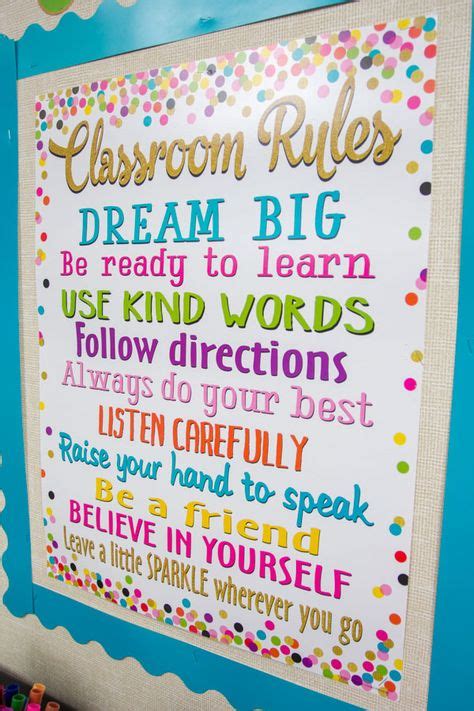 Classroom Rules
DREAM BIG
Be ready to learn
USE KIND WORDS
Follow directions
Always do your best
LISTEN CAREFULLY
Raise your hand to speak
Be a friend
BELIEVE IN YOURSELF
Leave a little SPARKLE wherever you go